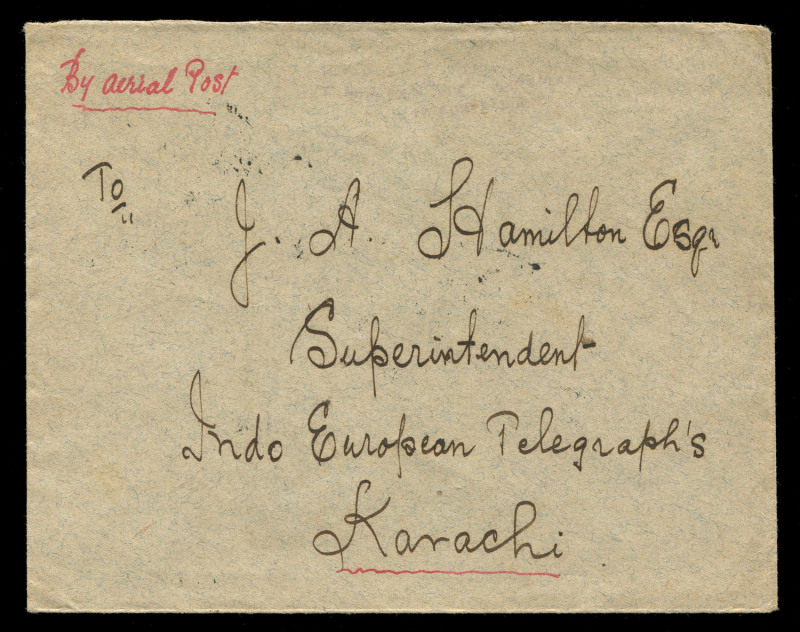 By aerial Post
To
J. A. Hamilton Esqr
Superintendent
Indo European Telegraph's
Karachi